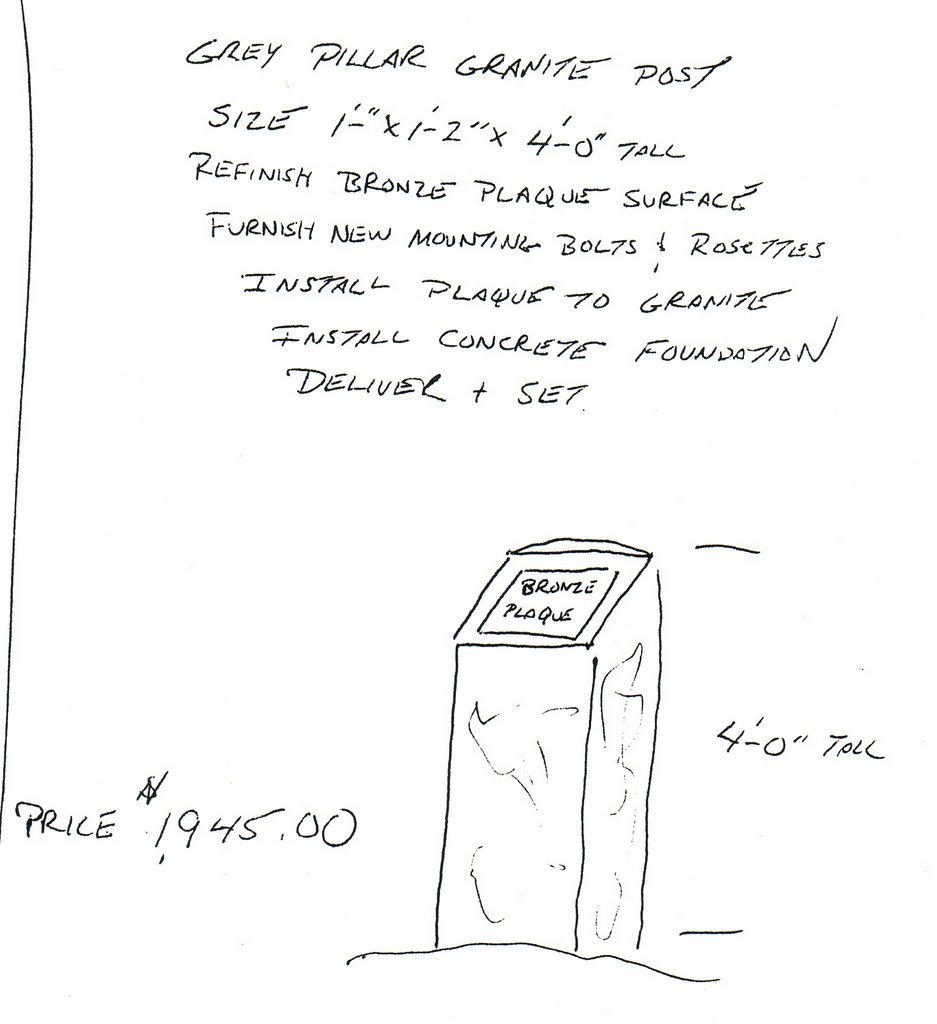 GREY PILLAR GRANITE POST
SIZE 1'-" X 1'-2" X 4'-0" TALL
REFINISH BRONZE PLAQUE SURFACE
FURNISH NEW MOUNTING BOLTS & ROSETTES
INSTALL PLAQUE TO GRANITE
INSTALL CONCRETE FOUNDATION
DELIVER + SET.
BRONZE
PLAQUE
4'-0" TALL
PRICE $1,945.00